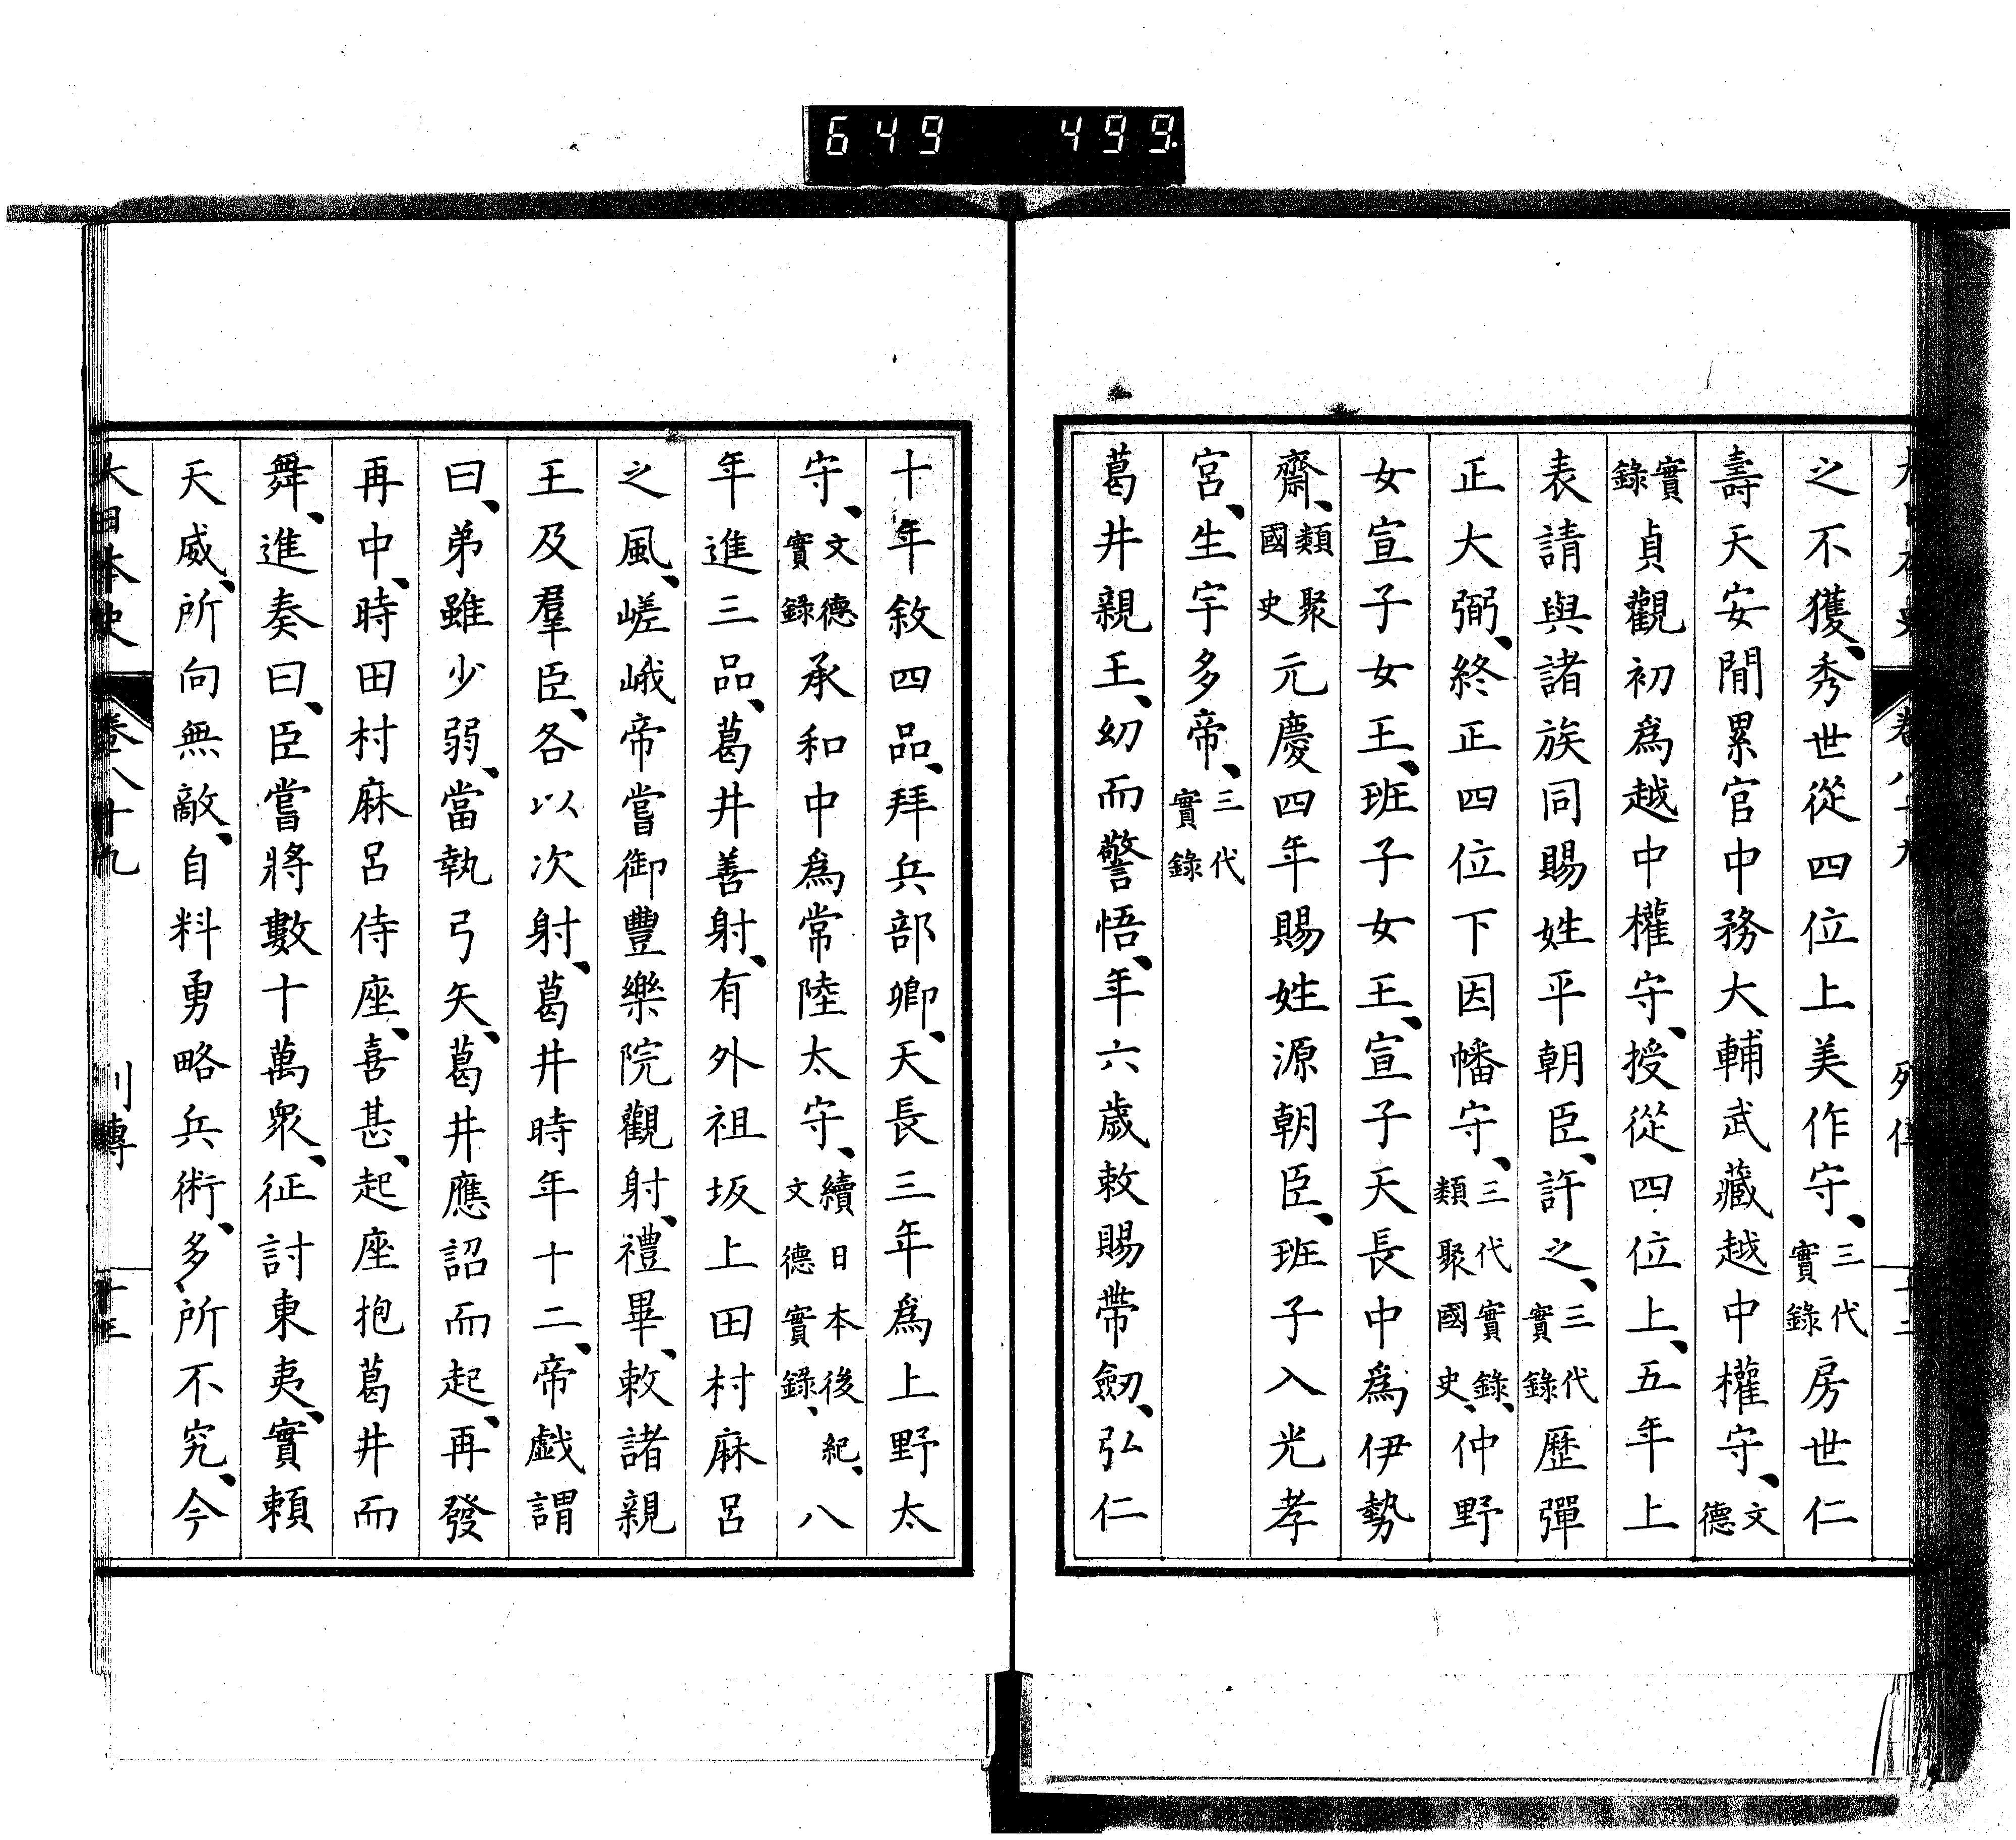 649 499
之不獲、秀世從四位上美作守、三代實錄房世仁
壽天安閒累官中務大輔武藏越中權守、文德
實錄貞觀初爲越中權守、授從四位上、五年上
表請與諸族同賜姓平朝臣、許之、三代實錄歷彈
正大弼、終正四位下因幡守、三代實錄、類聚國史、仲野
女宣子女王、班子女王、宣子天長中爲伊勢
齋、類聚國史元慶四年賜姓源朝臣、班子入光孝
宮、生宇多帝、三代實錄
葛井親王、幼而警悟、年六歲敕賜帶劒、弘仁
十年敘四品、拜兵部卿、天長三年爲上野太
守、文德實錄承和中爲常陸太守、續日本後紀、文德實錄、八
年進三品、葛井善射、有外祖坂上田村麻呂
之風、嵯峨帝嘗御豐樂院觀射、禮畢、敕諸親
王及羣臣、各以次射、葛井時年十二、帝戲謂
曰、弟雖少弱、當執弓矢、葛井應詔而起、再發
再中、時田村麻呂侍座、喜甚、起座抱葛井而
舞、進奏曰、臣嘗將數十萬衆、征討東夷、實賴
天威、所向無敵、自料勇略兵術、多所不究、今
大日本史 卷八十九 列傳 十三